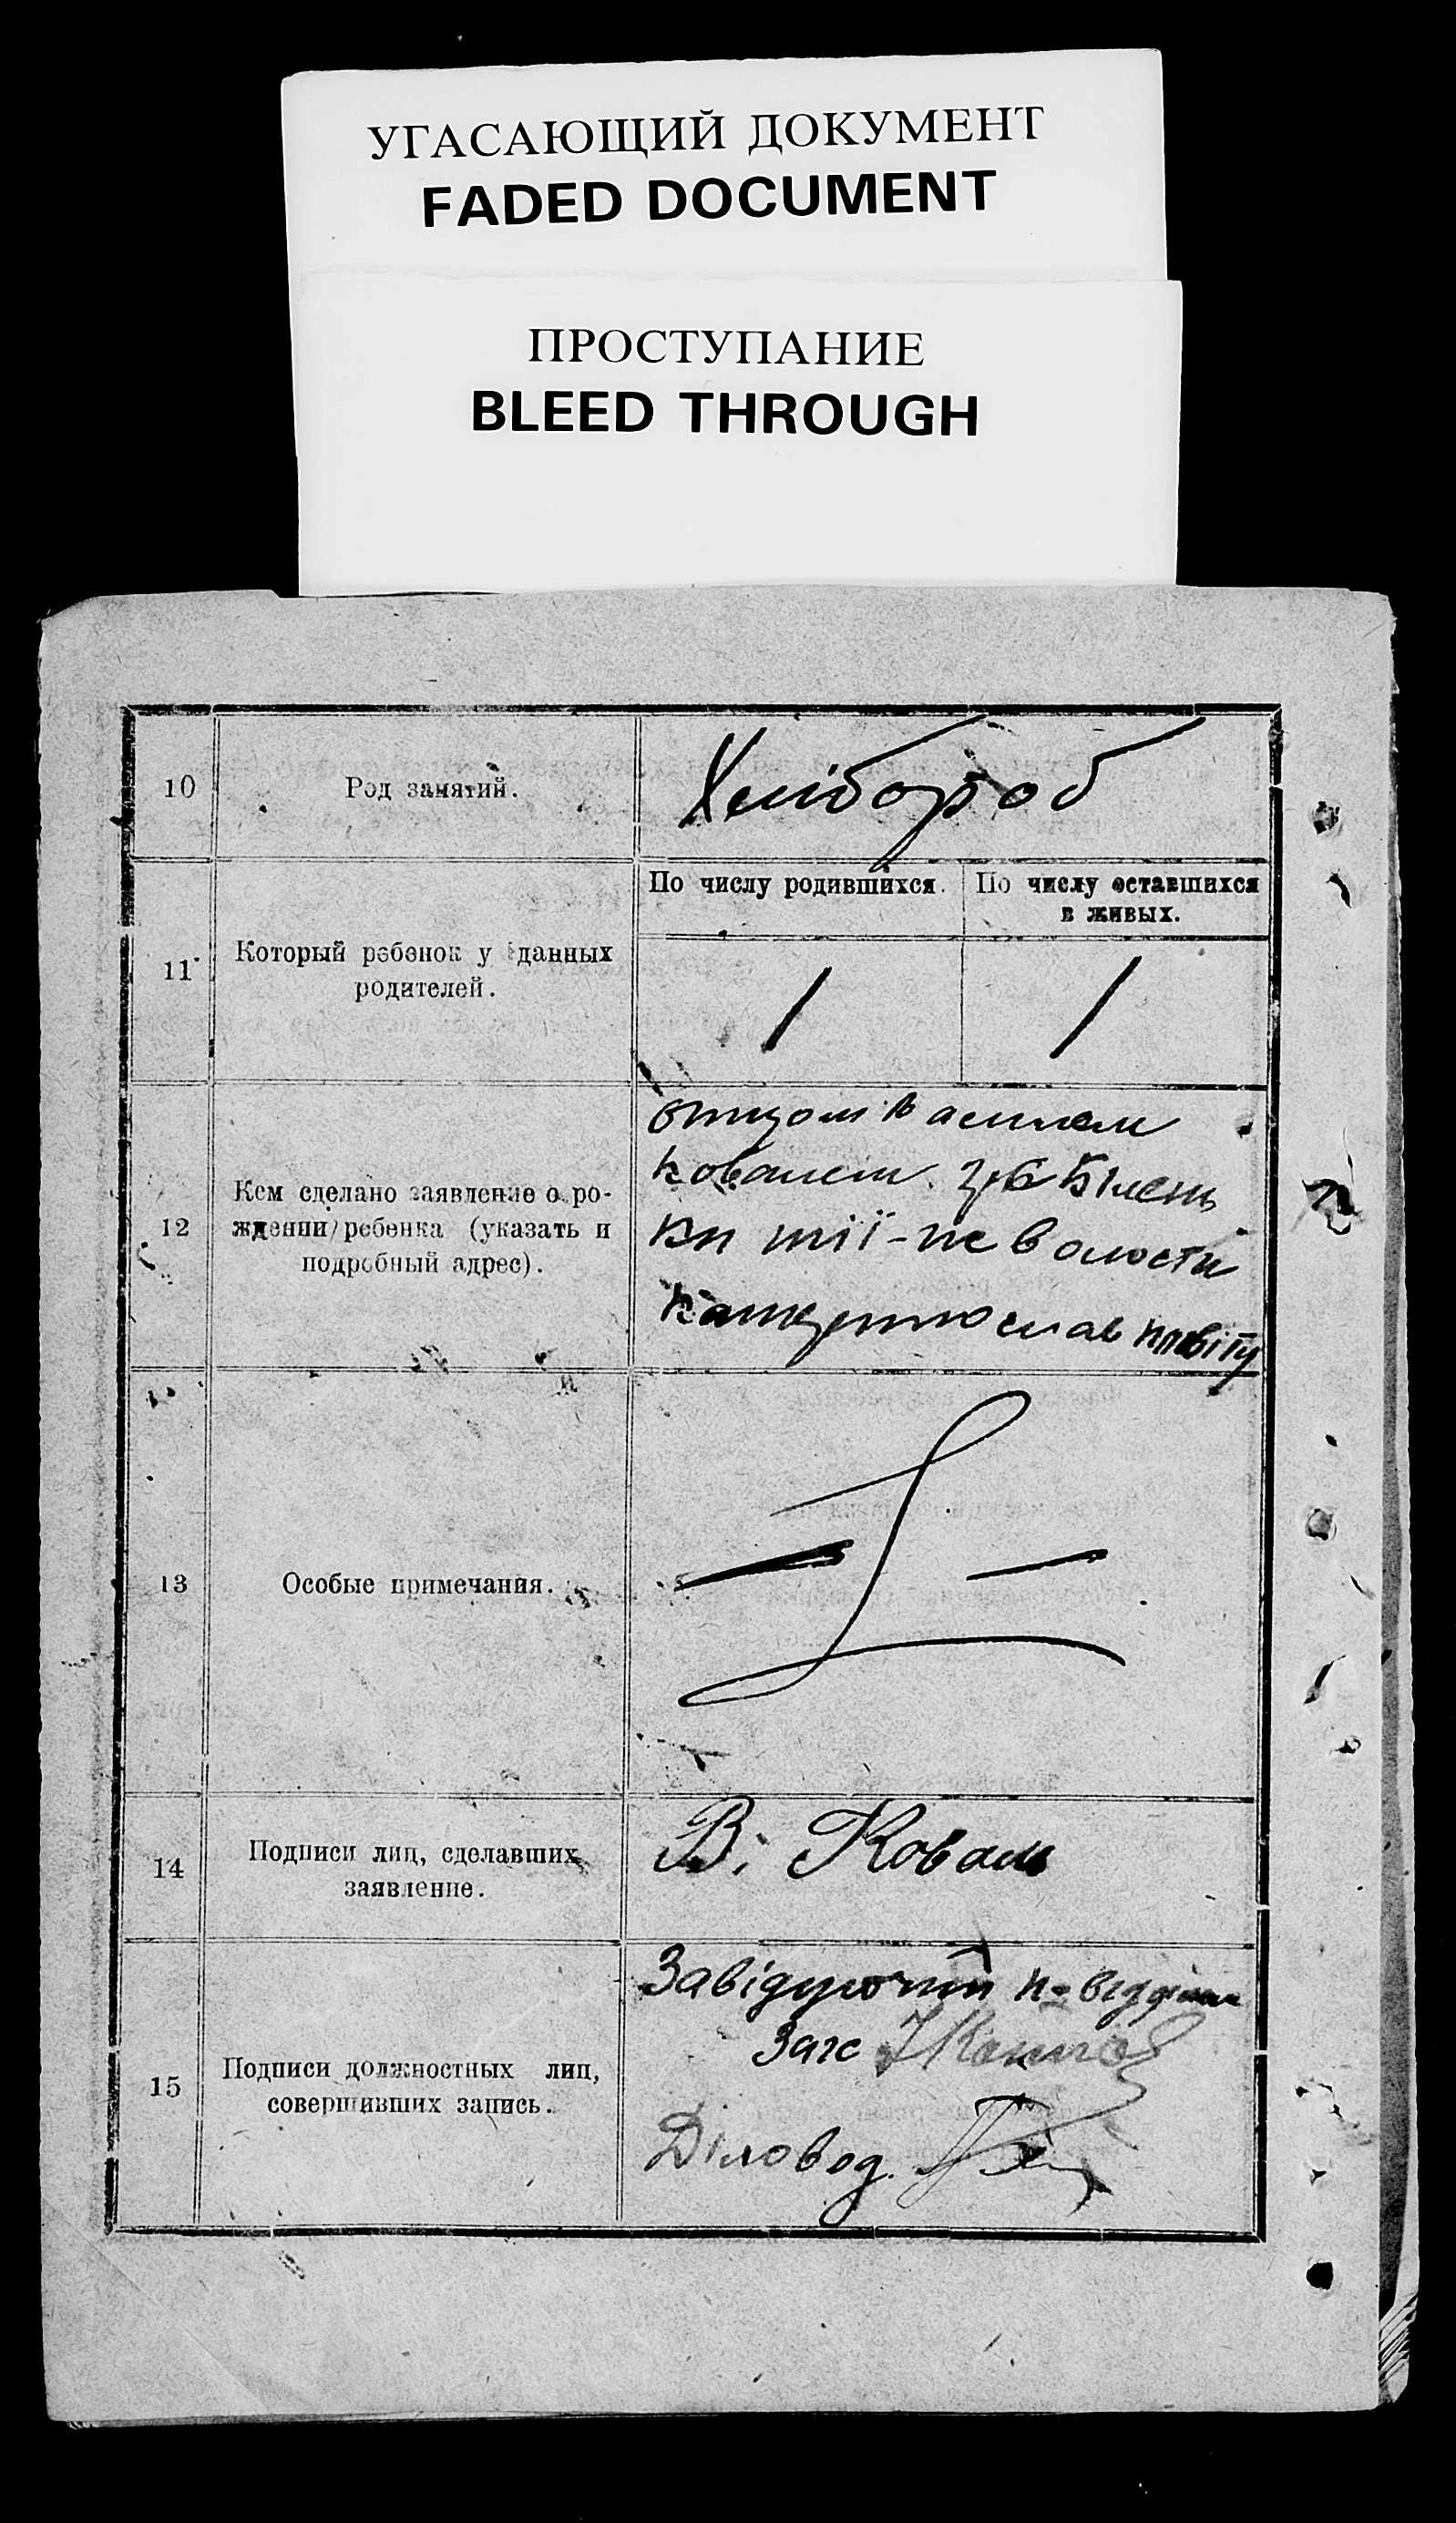 УГАСАЮЩИЙ ДОКУМЕНТ
FADED DOCUMENT
ПРОСТУПАНИЕ
BLEED THROUGH
10
Род занятий.
Хлібороб
11
Который ребенок у данных
родителей.
По числу родившихся.
По числу оставшихся
в живых.
1
1
12
Кем сделано заявление о ро-
ждении ребенка (указать и
подробный адрес).
отцом Василем
Ковалем.
ки тії-же волости
повіту
13
Особые примечания.
14
Подписи лиц, сделавших
заявление.
В. Коваль
15
Подписи должностных лиц,
совершивших запись.
Завідуючий
Загс
Діловод.